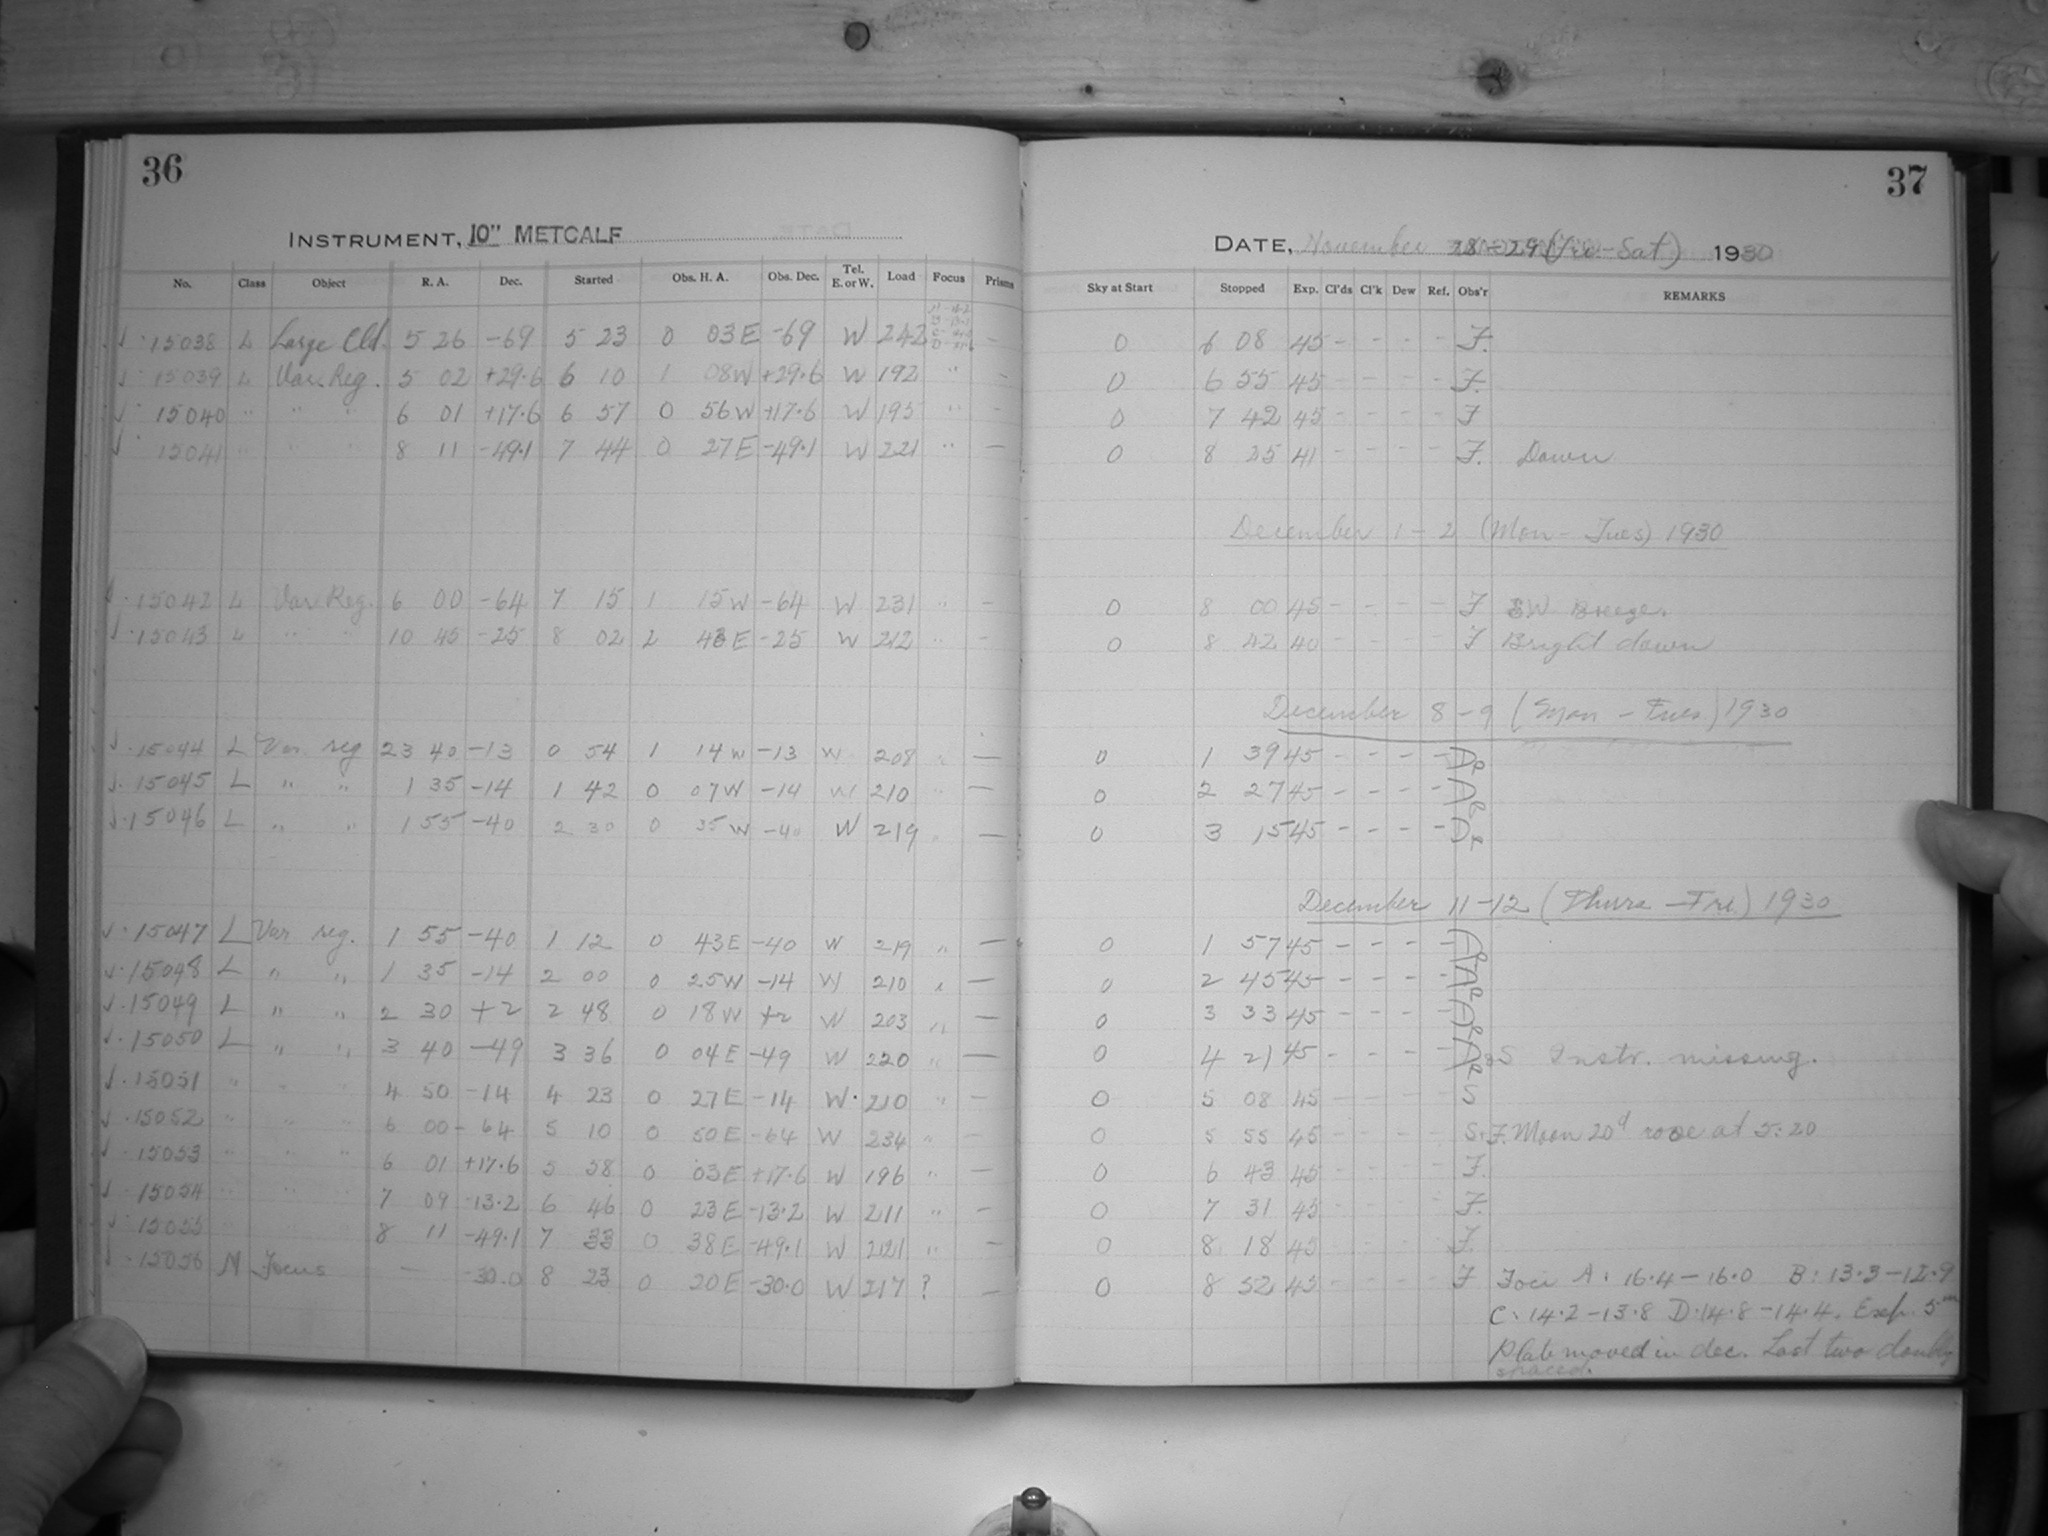 36
INSTRUMENT, 10" METCALF
No. Class Object R. A. Dec. Started Obs. H. A. Obs. Dec. Tel. E. or W. Load Focus Prisms
15038 L Large Cld. 5 26 -69 5 23 0 03 E -69 W 242 -
15039 L Var. Reg. 5 02 +29.6 6 10 1 08 W +29.6 W 192 " -
15040 " " " 6 01 +17.6 6 57 0 56 W +17.6 W 195 " -
15041 " " " 8 11 -49.1 7 44 0 27 E -49.1 W 221 " -
15042 L Var Reg. 6 00 -64 7 15 1 15 W -64 W 231 " -
15043 L " " 10 45 -25 8 02 2 43 E -25 W 212 " -
15044 L Var reg 23 40 -13 0 54 1 14 W -13 W 208 " -
15045 L " " 1 35 -14 1 42 0 07 W -14 W 210 " -
15046 L " " 1 55 -40 2 30 0 35 W -40 W 219 " -
15047 L Var reg. 1 55 -40 1 12 0 43 E -40 W 219 " -
15048 L " " 1 35 -14 2 00 0 25 W -14 W 210 " -
15049 L " " 2 30 +2 2 48 0 18 W +2 W 203 " -
15050 L " " 3 40 -49 3 36 0 04 E -49 W 220 " -
15051 " " " 4 50 -14 4 23 0 27 E -14 W 210 " -
15052 " " " 6 00 -64 5 10 0 50 E -64 W 234 " -
15053 " " " 6 01 +17.6 5 58 0 03 E +17.6 W 196 " -
15054 " " " 7 09 -13.2 6 46 0 23 E -13.2 W 211 " -
15055 " " " 8 11 -49.1 7 33 0 38 E -49.1 W 221 " -
15056 M Focus - -30.0 8 23 0 20 E -30.0 W 217 ? -
37
DATE, November 28-29 (Fri-Sat) 1930
Sky at Start Stopped Exp. Cl'ds Cl'k Dew Ref. Obs'r REMARKS
0 6 08 45 - - - - F.
0 6 55 45 - - - - F.
0 7 42 45 - - - - F
0 8 25 41 - - - - F. Dawn
December 1-2 (Mon-Tues) 1930
0 8 00 45 - - - - F SW Breeze.
0 8 42 40 - - - - F Bright dawn
December 8-9 (Mon-Tues.) 1930
0 1 39 45 - - - -
0 2 27 45 - - - -
0 3 15 45 - - - -
December 11-12 (Thurs-Fri.) 1930
0 1 57 45 - - - -
0 2 45 45 - - - -
0 3 33 45 - - - -
0 4 21 45 - - - - Instr. missing.
0 5 08 45 - - - - S
0 5 55 45 - - - - S.F. Moon 20d rose at 5:20
0 6 43 45 - - - - F.
0 7 31 45 - - - - F.
0 8 18 45 - - - - F.
0 8 52 45 - - - - F Foci A: 16.4-16.0 B: 13.3-12.9
C: 14.2-13.8 D: 14.8-14.4. Exp. 5m
Plate moved in dec. Last two doubly
spaced.